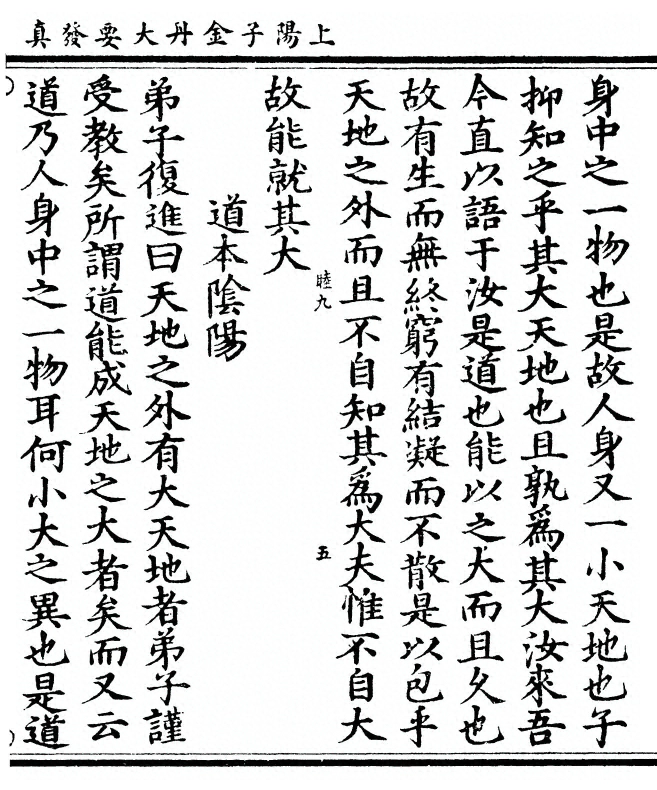 上陽子金丹大要發真
身中之一物也是故人身又一小天地也子
抑知之乎其大天地也且孰爲其大汝來吾
今直以語于汝是道也能以之大而且久也
故有生而無終窮有結凝而不散是以包乎
天地之外而且不自知其爲大夫惟不自大
睦九
五
故能就其大
道本陰陽
弟子復進曰天地之外有大天地者弟子謹
受教矣所謂道能成天地之大者矣而又云
道乃人身中之一物耳何小大之異也是道